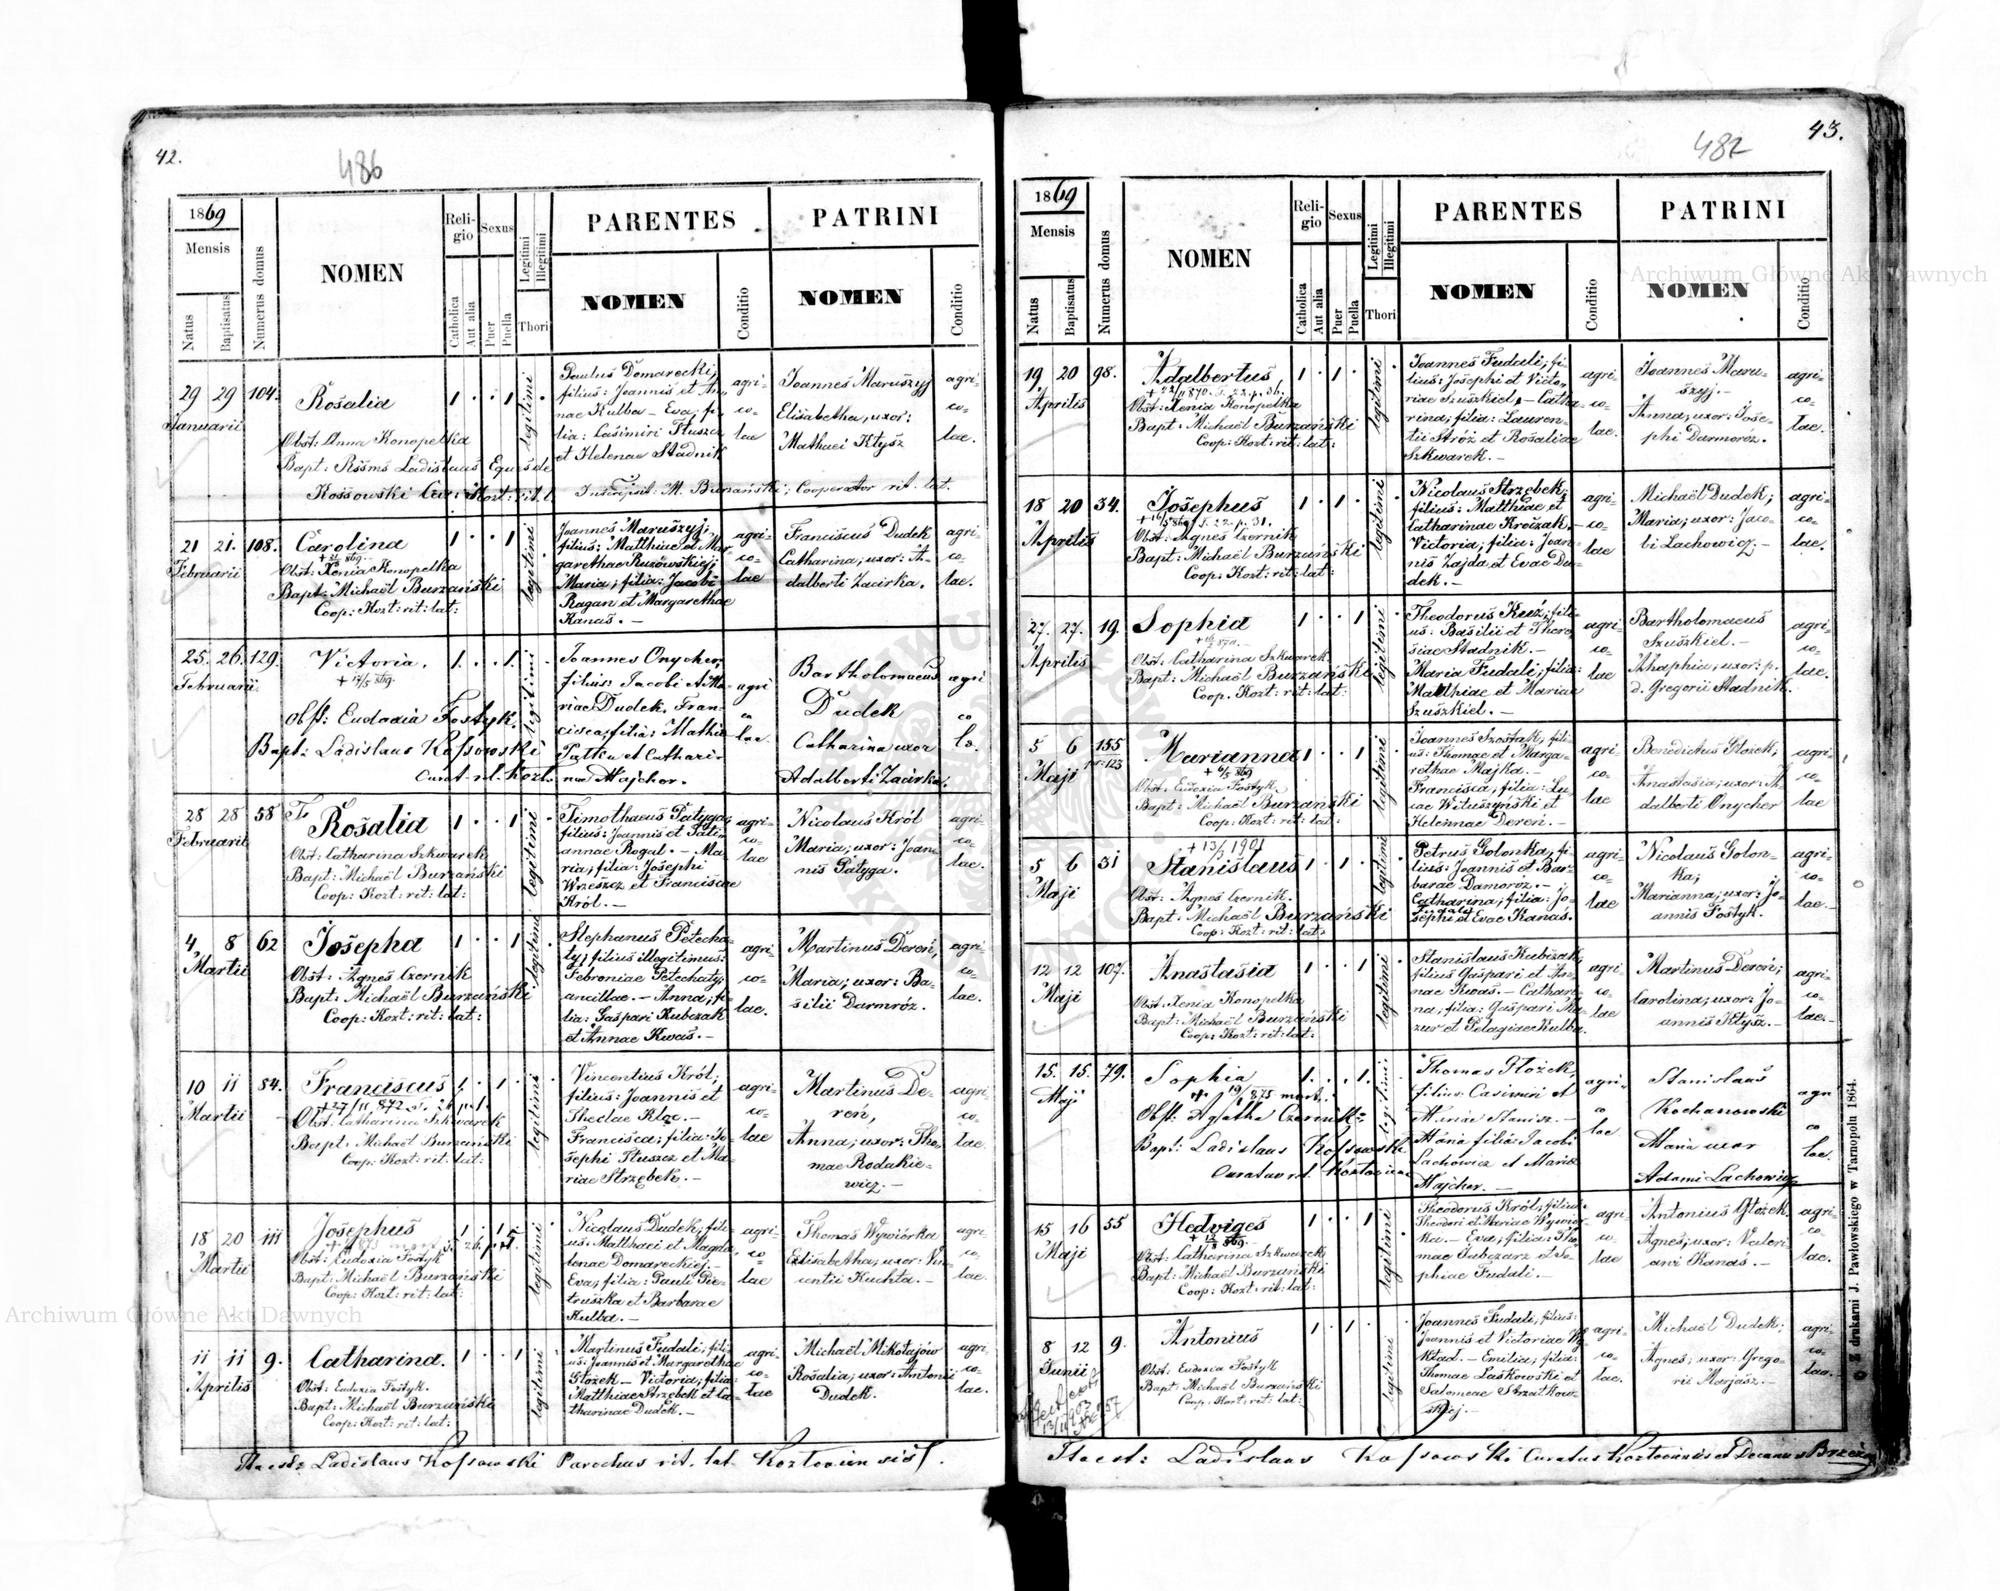 42.
486
1869
Mensis
Natus
Baptisatus
Numerus domus
NOMEN
Religio
Catholica
Aut alia
Sexus
Puer
Puella
Legitimi
Illegitimi
Thori
PARENTES
NOMEN
Conditio
PATRINI
NOMEN
Conditio
29 29 104.
Januarii
Rosalia
1 . . 1 .
legitimi
Obst: Anna Konopelka
Bapt: Rssms Ladislaus Eques de
Kossowski Cur: Kozt: rit. l.
Paulus Domarecki;
filius: Joannis et An-
nae Kulba – Eva; fi-
lia: Casimiri Tłuszcz
et Helenae Stadnik
agri-
co-
lae
Joannes Maruszyj
Elisabetha, uxor:
Mathaei Kłysz
agri-
co-
lae.
Inscripsit: M. Burzański; Cooperator rit. lat.
21 21. 108.
Februarii
Carolina
1 . . 1
legitimi
Obst: Xenia Konopelka
Bapt: Michaël Burzański
Coop: Kozt: rit: lat:
Joannes Maruszyj;
filius: Matthiae et Mar-
garethae Ruzowskiej;
Maria; filia: Jacobi
Ragan et Margarethae
Kanas. –
agri-
co-
lae
Franciscus Dudek
Catharina, uxor: A-
dalberti Zacirka.
agri-
co-
lae.
25. 26. 129.
Februarii
Victoria.
1. . . 1.
+ 17/5 869.
legitimi
Obst: Eudoxia Fostyk.
Bapt: Ladislaus Kossowski
Curat. rit. l. Kozt.
Joannes Onycher,
filius: Jacobi et Ma-
riae Dudek. Fran-
cisca, filia: Mathiae
Pałka et Cathari-
nae Majcher.
agri
co
lae.
Bartholomaeus
Dudek
Catharina uxor
Adalberti Zacirka.
agri
co
la.
28 28 58
Februarii
Rosalia
1 . . 1
legitimi
Obst: Catharina Szkwarek
Bapt: Michaël Burzański
Coop: Kozt: rit: lat:
Timothaeus Patyga;
filius: Joannis et Tati-
annae Rogal. – Ma-
ria; filia: Josephi
Wrzeszcz et Franciscae
Król. –
agri-
co-
lae
Nicolaus Król
Maria; uxor: Joan-
nis Patyga.
agri-
co-
lae.
4 8 62
Martii
Josepha
1 . . 1
legitimi
Obst: Agnes Czernik
Bapt: Michaël Burzański
Coop: Kozt: rit: lat:
Stephanus Petecha-
ty; filius illegitimus:
Febroniae Petechaty;
ancillae. – Anna; fi-
lia: Gaspari Kubczak
et Annae Kwas. –
agri-
co-
lae.
Martinus Dereń,
Maria; uxor: Ba-
silii Darmróz.
agri-
co-
lae.
10 11 84.
Martii
Franciscus
1 . 1
+ 27/11 872
legitimi
Obst: Catharina Szkwarek
Bapt: Michaël Burzański
Coop: Kozt: rit: lat:
Vincentius Król;
filius: Joannis et
Theclae Kłac. –
Francisca; filia: Jo-
sephi Tłuszcz et Ma-
riae Strzębek. –
agri-
co-
lae
Martinus De-
reń,
Anna; uxor: Tho-
mae Rodakie-
wicz. –
agri-
co-
lae.
18 20 111
Martii
Josephus
1 . 1
legitimi
Obst: Eudoxia Fostyk
Bapt: Michaël Burzański
Coop: Kozt: rit: lat:
Nicolaus Dudek; fili-
us: Matthaei et Magda-
lenae Domareckiej. –
Eva; filia: Pauli Pie-
truszka et Barbarae
Kulba. –
agri-
co-
lae
Thomas Wywiórka
Elisabetha; uxor: Vin-
centii Kuchta. –
agri-
co-
lae.
11 11 9.
Aprilis
Catharina.
1 . . 1
legitimi
Obst: Eudoxia Fostyk.
Bapt: Michaël Burzański
Coop: Kozt: rit: lat:
Martinus Fudali; fili-
us: Joannis et Margarethae
Głożek – Victoria; filia:
Matthiae Strzębek et Ca-
tharinae Dudek. –
agri-
co-
lae
Michaël Mikołajów
Rosalia; uxor: Antonii
Dudek.
agri-
co-
lae.
Ladislaus Kossowski Parochus rit. lat. Koztoviensis.
43.
482
1869
Mensis
Natus
Baptisatus
Numerus domus
NOMEN
Religio
Catholica
Aut alia
Sexus
Puer
Puella
Legitimi
Illegitimi
Thori
PARENTES
NOMEN
Conditio
PATRINI
NOMEN
Conditio
19 20 98.
Aprilis
Adalbertus
1 . 1 .
legitimi
Obst: Xenia Konopelka
Bapt: Michaël Burzański
Coop: Kozt: rit: lat:
Joannes Fudali; fi-
lius: Josephi et Victo-
riae Szuszkiel. – Catha-
rina; filia: Lauren-
tii Stróz et Rosaliae
Szkwarek. –
agri-
co-
lae.
Joannes Maru-
szyj. –
Anna; uxor: Jose-
phi Darmoróz.
agri-
co-
lae.
18 20 34.
Aprilis
Josephus
1 . 1 .
legitimi
Obst: Agnes Czernik
Bapt: Michaël Burzański
Coop: Kozt: rit: lat:
Nicolaus Strzębek;
filius: Matthiae et
Catharinae Kroczak. –
Victoria; filia: Joan-
nis Zajda et Evae Du-
dek. –
agri-
co-
lae
Michaël Dudek;
Maria; uxor: Jaco-
bi Lachowicz. –
agri-
co-
lae.
27. 27. 19.
Aprilis
Sophia
1 . . 1
legitimi
Obst: Catharina Szkwarek
Bapt: Michaël Burzański
Coop. Kozt: rit: lat:
Theodorus Kuź; fili-
us: Basilii et There-
siae Stadnik. –
Maria Fudali; filia:
Matthiae et Mariae
Szuszkiel. –
agri-
co-
lae
Bartholomaeus
Szuszkiel. –
Ahaphia; uxor: p.
d. Gregorii Stadnik.
agri-
co-
lae.
5 6 155
Maji
Marianna
1 . . 1
+ 6/5 869
legitimi
Obst: Eudoxia Fostyk
Bapt: Michaël Burzański
Coop: Kozt: rit: lat:
Joannes Szostak; fili-
us: Thomae et Marga-
rethae Majka. –
Francisca; filia: Lu-
cae Wituszyński et
Helennae Dereń. –
agri-
co-
lae
Benedictus Głożek;
Anastasia; uxor: A-
dalberti Onycher
agri-
co-
lae
5 6 31
Maji
+ 13/1 1901
Stanislaus
1 . 1 .
legitimi
Obst: Agnes Czernik.
Bapt: Michaël Burzański
Coop: Kozt: rit: lat:
Petrus Golonka; fi-
lius: Joannis et Bar-
barae Damoroz. –
Catharina; filia: Jo-
sephi et Evae Kanas.
agri-
co-
lae
Nicolaus Golon-
ka;
Marianna; uxor: Jo-
annis Fostyk.
agri-
co-
lae. –
12 12 107.
Maji
Anastasia
1 . . 1
legitimi
Obst: Xenia Konopelka
Bapt: Michaël Burzański
Coop: Kozt: rit: lat:
Stanislaus Kubczak;
filius Gaspari et An-
nae Kwas. – Cathari-
na; filia: Gaspari Ma-
zur et Pelagiae Kulba.
agri-
co-
lae
Martinus Dereń;
Carolina; uxor: Jo-
annis Kłysz. –
agri-
co-
lae. –
15. 15. 79.
Maji
Sophia
1. . . 1.
legitimi
Obst: Agatha Czernik
Bapt: Ladislaus Kossowski
Curatus r. l. Koztoviensis
Thomas Głożek,
filius Casimiri et
Mariae Stanisz. –
Maria filia: Jacobi
Lachowicz et Mariae
Majcher. –
agri-
co
lae
Stanislaus
Kochanowski
Maria uxor
Adami Lachowicz
agri
co
lae.
15 16 55
Maji
Hedviges
1 . . 1
legitimi
Obst: Catharina Szkwarek
Bapt: Michaël Burzański
Coop: Kozt: rit: lat:
Theodorus Król; filius:
Theodori et Mariae Wywiór-
ka. – Eva; filia: Tho-
mae Bebczarz et So-
phiae Fudali. –
agri-
co-
lae
Antonius Głożek.
Agnes; uxor: Valeri-
ani Kanas. –
agri-
co-
lae.
8 12 9.
Junii
Antonius
1 . 1 .
legitimi
Obst: Eudoxia Fostyk
Bapt: Michaël Burzański
Coop: Kozt: rit: lat:
Joannes Fudali, filius:
Joannis et Victoriae Wy-
kład. – Emilia; filia:
Thomae Laskowski et
Salomeae Strzałkow-
skiej. –
agri-
co-
lae.
Michaël Dudek;
Agnes; uxor: Grego-
rii Marjasz. –
agri-
co-
lae.
Ladislaus Kossowski Curatus Koztoviensis et Decanus Brzeżan
Z drukarni J. Pawłowskiego w Tarnopolu 1864.
Archiwum Główne Akt Dawnych
Archiwum Główne Akt Dawnych